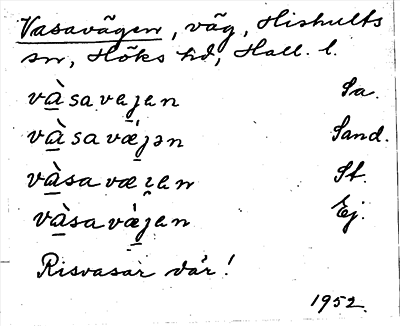 Vasavägen, väg, Hishults
sn, Höks hd, Hall. l.
và̠savejen Sa.
và̠savǽjən Sand.
và̠savæien St.
và̠savæ̀jen Ej.
Risvasar där!
1952.